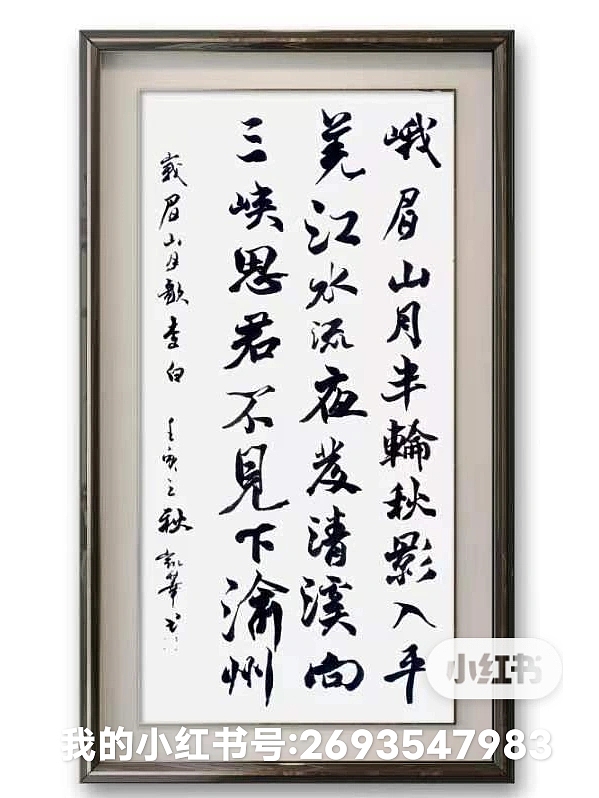 峨眉山月半輪秋影入平
羌江水流夜發清溪向
三峽思君不見下渝州
峩眉山月歌李白 壬寅之秋 凱華书
小红书
我的小红书号:2693547983